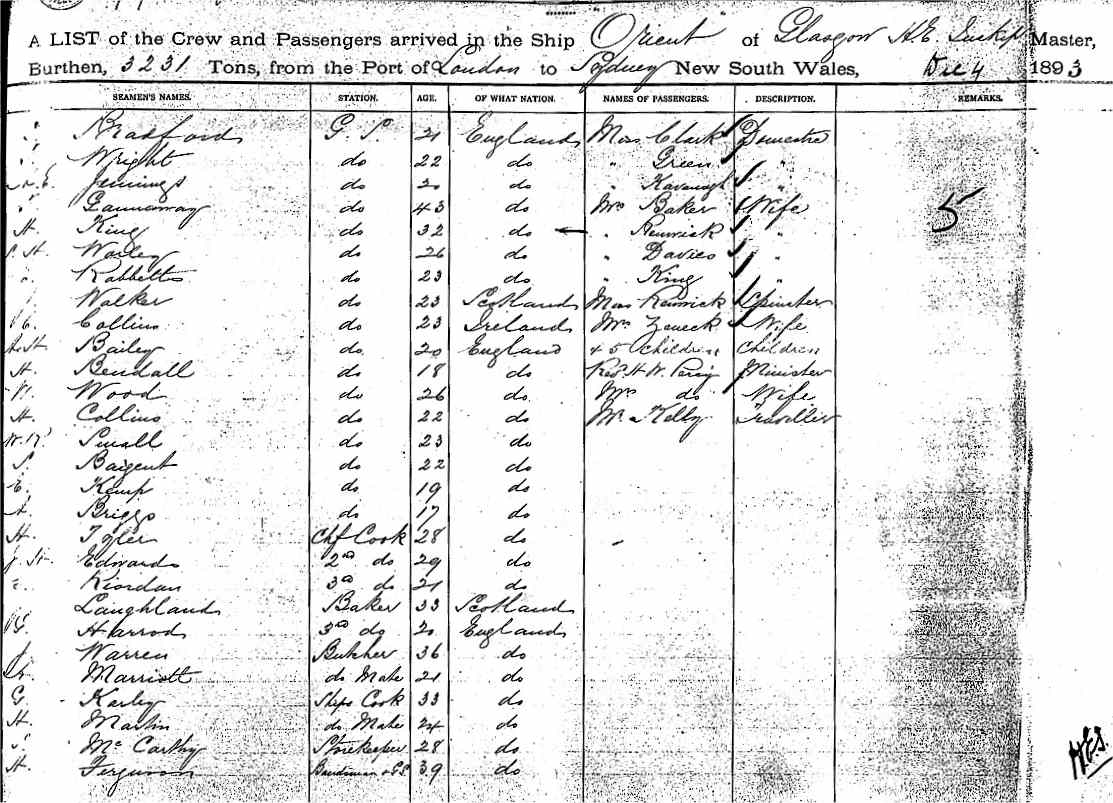 A LIST of the Crew and Passengers arrived in the Ship Orient of Glasgow H.E. Master,
Burthen, 3231 Tons, from the Port of London to Sydney New South Wales, Dec 4 1893
SEAMEN'S NAMES. STATION. AGE. OF WHAT NATION. NAMES OF PASSENGERS. DESCRIPTION. REMARKS.
Bradford G. S. 21 England Miss Clark Domestic
Wright do 22 do " Green "
Jennings do 20 do " Kavanagh "
Gannaway do 43 do Mrs Baker Wife 5
H. King do 32 do " Renwick "
do 26 do " Davies "
Rabbetts do 23 do " King "
Walker do 23 Scotland Miss Renwick Spinster
Collins do 23 Ireland Mrs Zeneck Wife
Bailey do 20 England + 5 children Children
H. Bendall do 18 do Revd H. W. Minister
Wood do 26 do Mrs do Wife
H. Collins do 22 do Mr Kelly Traveller
Small do 23 do
S. Bargent do 22 do
E. Kemp do 19 do
A. Briggs do 17 do
H. Tyler Chf Cook 28 do
Edwards 2nd do 29 do
Riordan 3rd do 21 do
Laughland Baker 33 Scotland
Harrod 3rd do 20 England
Warren Butcher 36 do
Marriott do Mate 21 do
G. Karley Ships Cook 33 do
H. Martin do Mate 24 do
McCarthy Storekeeper 28 do
H. Ferguson Bandsman & GS 39 do